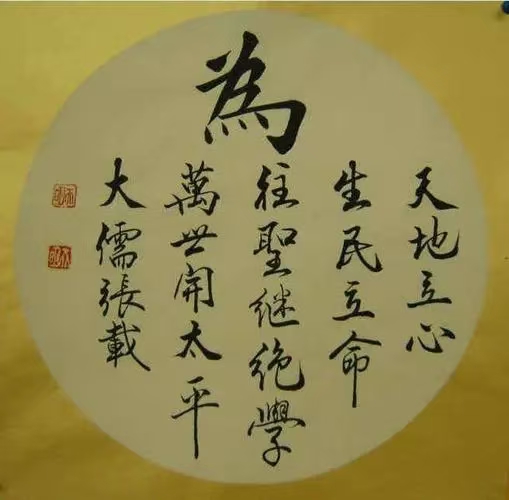 為
天地立心
生民立命
往聖继绝學
萬世開太平
大儒張載